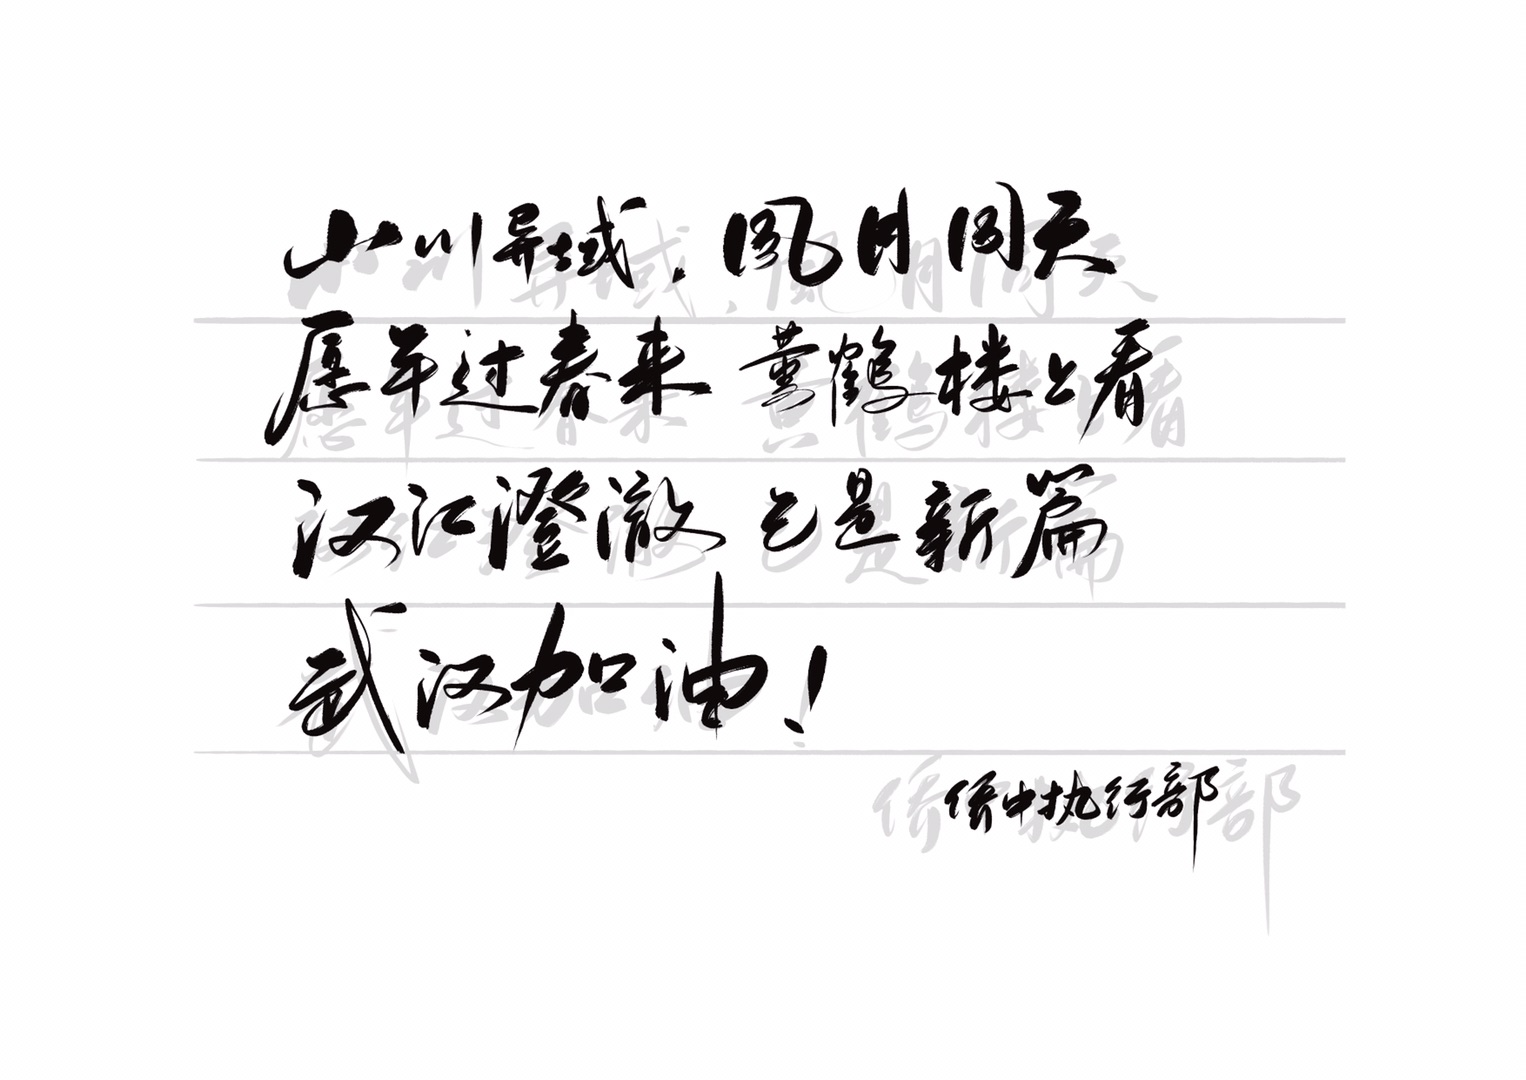 山川异域，風月同天
愿年过春来 黄鹤楼上看
汉江澄澈 已是新篇
武汉加油！
侨中执行部